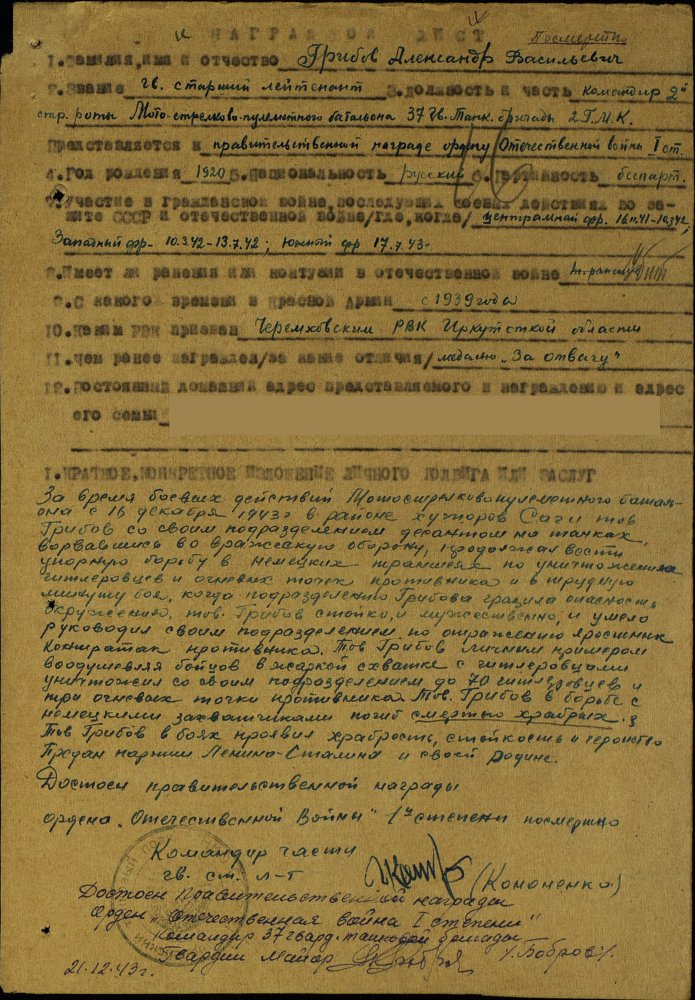 НАГРАДНОЙ ЛИСТ Посмертно
1. Фамилия, имя и отчество Грибов Александр Васильевич
2. Звание гв. старший лейтенант 3. Должность и часть командир 2й
стр. роты Мото-стрелково-пулеметного батальона 37 Гв. Танк. бригады 2 Г.М.К.
Представляется к правительственной награде ордену Отечественной войны I ст.
4. Год рождения 1920 5. Национальность русский 6. Партийность беспарт.
7. Участие в гражданской войне, последующих боевых действиях по за-
щите СССР и отечественной войне /где, когда/ центральный фр. 16.11.41-10.3.42
Западный фр. 10.3.42-13.7.42; Южный фр 17.7.43г.
8. Имеет ли ранения или контузии в отечественной войне
9. С какого времени в Красной Армии с 1939 года
10. Каким РВК призван Черемховским РВК Иркутсткой области
11. Чем ранее награжден /за какие отличия/ медалью „За отвагу"
12. Постоянный домашний адрес представляемого к награждению и адрес
его семьи
1. КРАТКОЕ, КОНКРЕТНОЕ ИЗЛОЖЕНИЕ ЛИЧНОГО ПОДВИГА ИЛИ ЗАСЛУГ
За время боевых действий Мотострелковопулеметного баталь-
она с 16 декабря 1943г в районе хуторов Саги тов
Грибов со своим подразделением десантом на танках,
ворвавшись во вражескую оборону, продолжал вести
упорную борьбу в немецких траншеях по уничтожению
гитлеровцев и огневых точек противника и в трудную
минуту боя, когда подразделению Грибова грозила опасность
окружению, тов. Грибов стойко, и мужественно, и умело
руководил своим подразделением по отражению яростных
контратак противника. Тов Грибов личным примером
воодушевляя бойцов в жаркой схватке с гитлеровцами
уничтожил со своим подразделением до 70 гитлеровцев и
три огневых точки противника. Тов. Грибов в борьбе с
немецкими захватчиками погиб смертью храбрых.
Тов Грибов в боях проявил храбрость, стойкость и геройство
Предан партии Ленина-Сталина и своей родине.
Достоен правительственной награды
ордена „Отечественной Войны" 1й степени посмертно
Командир части
гв. ст. л-т (Кононенко)
Достоен Правительственной награды
Орден „Отечественная война I степени"
Командир 37 гвард. танковой бригады
Гвардии майор /Бобров/.
21.12.43г.